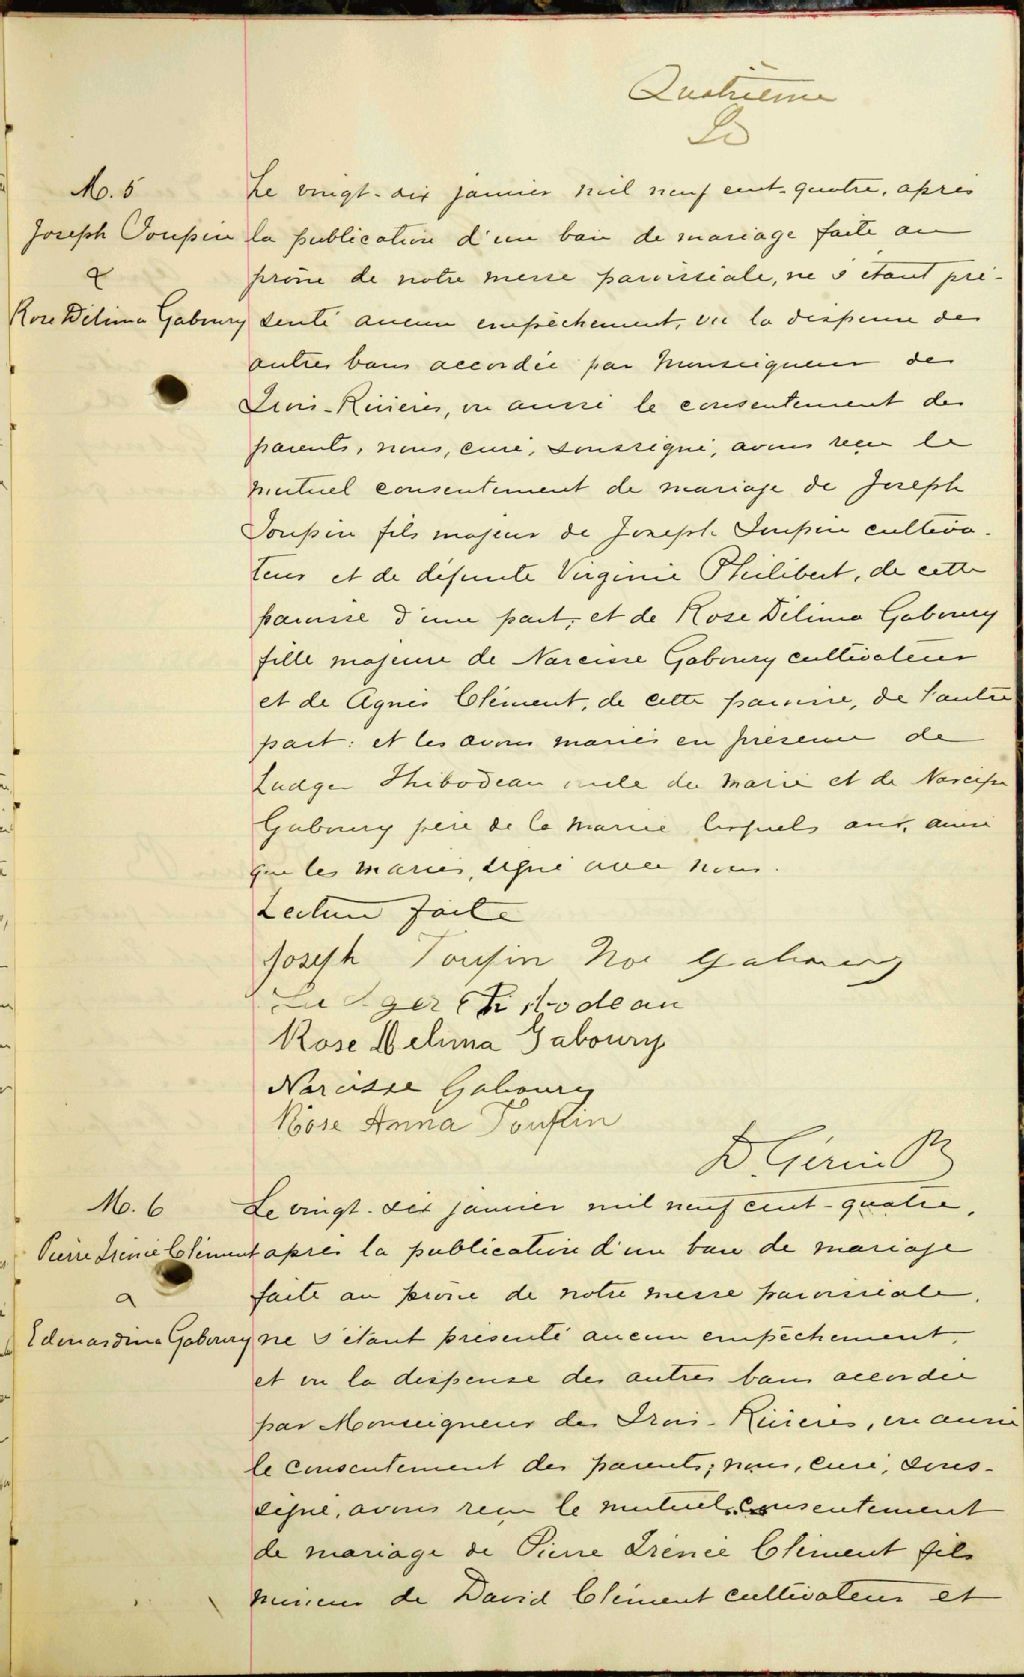 Quatrième
M. 5
Joseph Toupin
&
Rose Délima Gaboury
Le vingt-six janvier mil neuf cent-quatre, après
la publication d'un ban de mariage faite au
prône de notre messe paroissiale, ne s'étant pré-
senté aucun empêchement, vu la dispense des
autres bans accordée par Monseigneur des
Trois-Rivières, vu aussi le consentement des
parents, nous, curé, soussigné, avons reçu le
mutuel consentement de mariage de Joseph
Toupin fils majeur de Joseph Toupin cultiva-
teur et de défunte Virginie Philibert, de cette
paroisse d'une part, et de Rose Délima Gaboury
fille majeure de Narcisse Gaboury cultivateur
et de Agnès Clément, de cette paroisse, de l'autre
part: et les avons mariés en présence de
Ludger Thibodeau oncle du marié et de Narcisse
Gaboury père de la mariée lesquels ont, ainsi
que les mariés, signé avec nous.
Lecture faite
Joseph Toupin Noe Gaboury
Ludger Thibodeau
Rose Delima Gaboury
Narcisse Gaboury
Rose Anna Toupin
D. Gérin Ptre
M. 6
Pierre Irénée Clément
&
Edouardina Gaboury
Le vingt-six janvier mil neuf cent-quatre,
après la publication d'un ban de mariage
faite au prône de notre messe paroissiale,
ne s'étant présenté aucun empêchement,
et vu la dispense des autres bans accordée
par Monseigneur des Trois-Rivières, vu aussi
le consentement des parents; nous, curé, sous-
signé, avons reçu le mutuel consentement
de mariage de Pierre Irénée Clément fils
mineur de David Clément cultivateur et